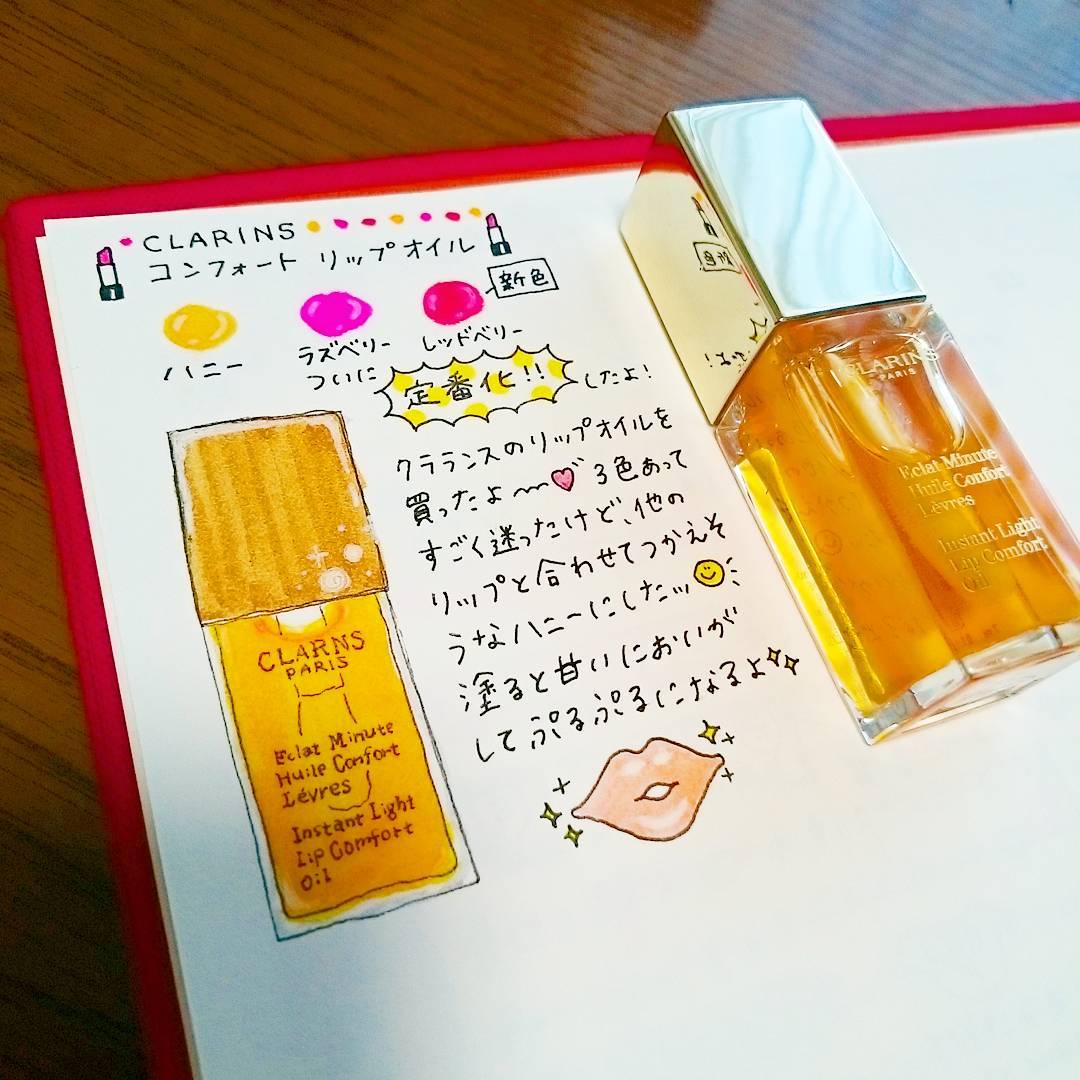 CLARINS
コンフォート リップオイル
新色
ハニー
ラズベリー
レッドベリー
ついに 定番化!! したよ!
クラランスのリップオイルを
買ったよ〜♡ 3色あって
すごく迷ったけど、他の
リップと合わせてつかえそ
うなハニーにしたッ
塗ると甘いにおいが
してぷるぷるになるよ
CLARNS
PARIS
Eclat Minute
Huile Confort
Lévres
Instant Light
Lip Comfort
Oil
CLARINS
PARIS
Eclat Minute
Huile Confort
Lèvres
Instant Light
Lip Comfort
Oil